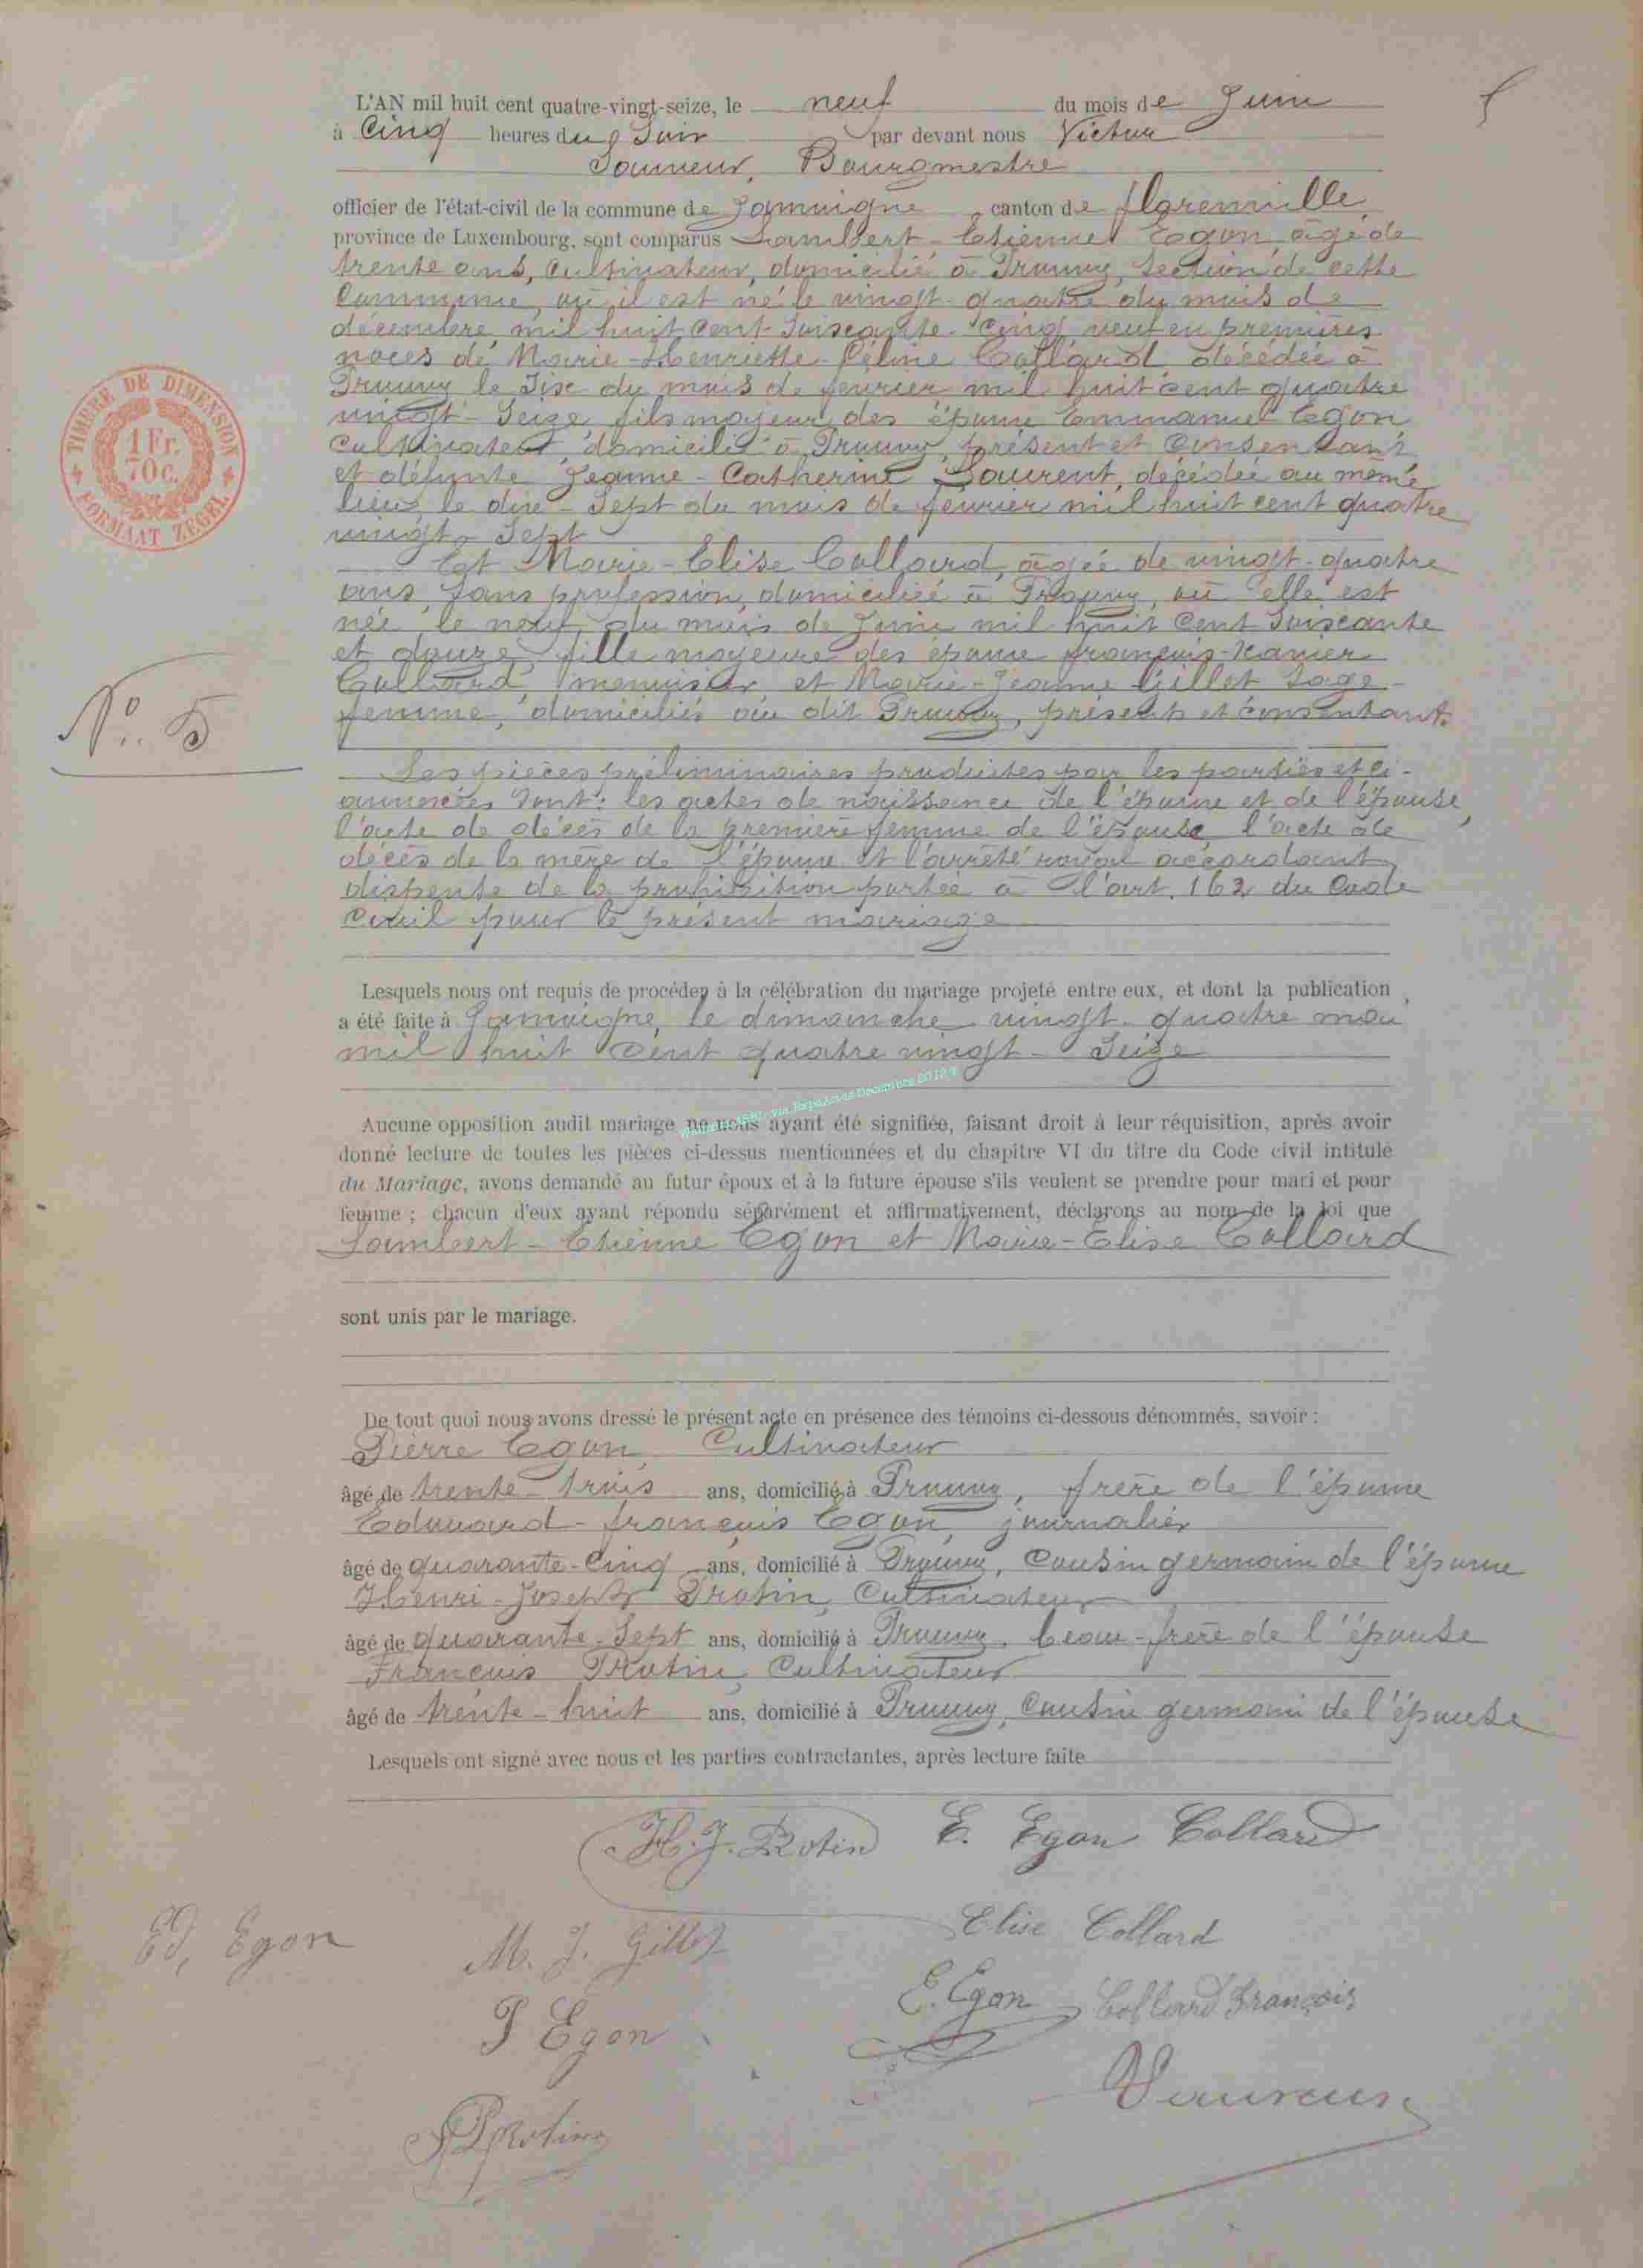 L'AN mil huit cent quatre-vingt-seize, le neuf du mois de Juin
à Cinq heures du Soir par devant nous Victor
Bourgmestre
officier de l'état-civil de la commune de Jamoigne canton de florenville
province de Luxembourg, sont comparus Lambert-Etienne Egon, âgé de
trente ans, Cultivateur, domicilié à Prouvy, Section de cette
Commune, où il est né le vingt-quatre du mois de
décembre mil huit cent Soixante-Cinq veuf en premières
noces de Marie-Henriette-Céline Collard, décédée à
Prouvy le Six du mois de février mil huit cent quatre
vingt-Seize fils majeur des époux Emmanuel Egon
Cultivateur, domicilié à Prouvy, présent et Consentant
et défunte Jeanne-Catherine Laurent, décédée au même
lieu, le dix-Sept du mois de février mil huit cent quatre
vingt-Sept
Et Marie-Elise Collard, âgée de vingt-quatre
ans, Sans profession, domiciliée à Prouvy, où elle est
née le neuf du mois de Juin mil huit Cent Soixante
et douze, fille majeure des époux françois-Xavier
Collard, menuisier et Marie-Jeanne Gillet Sage-
femme, domiciliés au dit Prouvy, présents et consentants
Les pièces préliminaires produites par les parties et ci-
annexées Sont: les actes de naissance de l'époux et de l'épouse,
l'acte de décès de la première femme de l'épouse l'acte de
décès de la mère de l'époux et l'arrêté royal accordant
dispense de la prohibition portée à l'art. 162 du Code
Civil pour le présent mariage
N°. 5
TIMBRE DE DIMENSION
1 Fr.
70 c.
FORMAAT ZEGEL
Lesquels nous ont requis de procéder à la célébration du mariage projeté entre eux, et dont la publication
a été faite à Jamoigne, le dimanche vingt-quatre mai
mil huit Cent quatre vingt-Seize
Aucune opposition audit mariage ne nous ayant été signifiée, faisant droit à leur réquisition, après avoir
donné lecture de toutes les pièces ci-dessus mentionnées et du chapitre VI du titre du Code civil intitulé
du Mariage, avons demandé au futur époux et à la future épouse s'ils veulent se prendre pour mari et pour
femme ; chacun d'eux ayant répondu séparément et affirmativement, déclarons au nom de la loi que
Lambert-Etienne Egon et Marie-Elise Collard
sont unis par le mariage.
De tout quoi nous avons dressé le présent acte en présence des témoins ci-dessous dénommés, savoir :
Pierre Egon, Cultivateur
âgé de trente-trois ans, domicilié à Prouvy, frère de l'époux
Edouard-françois Egon, journalier
âgé de quarante-Cinq ans, domicilié à Prouvy, Cousin germain de l'époux
Henri-Joseph Protin, Cultivateur
âgé de quarante-Sept ans, domicilié à Prouvy, beau-frère de l'épouse
François Protin, Cultivateur
âgé de trente-huit ans, domicilié à Prouvy, Cousin germain de l'épouse
Lesquels ont signé avec nous et les parties contractantes, après lecture faite
H. J. Protin E. Egon Collard
Elise Collard
Ed, Egon M. J. Gillet
E. Egon Collard François
P Egon
Protin